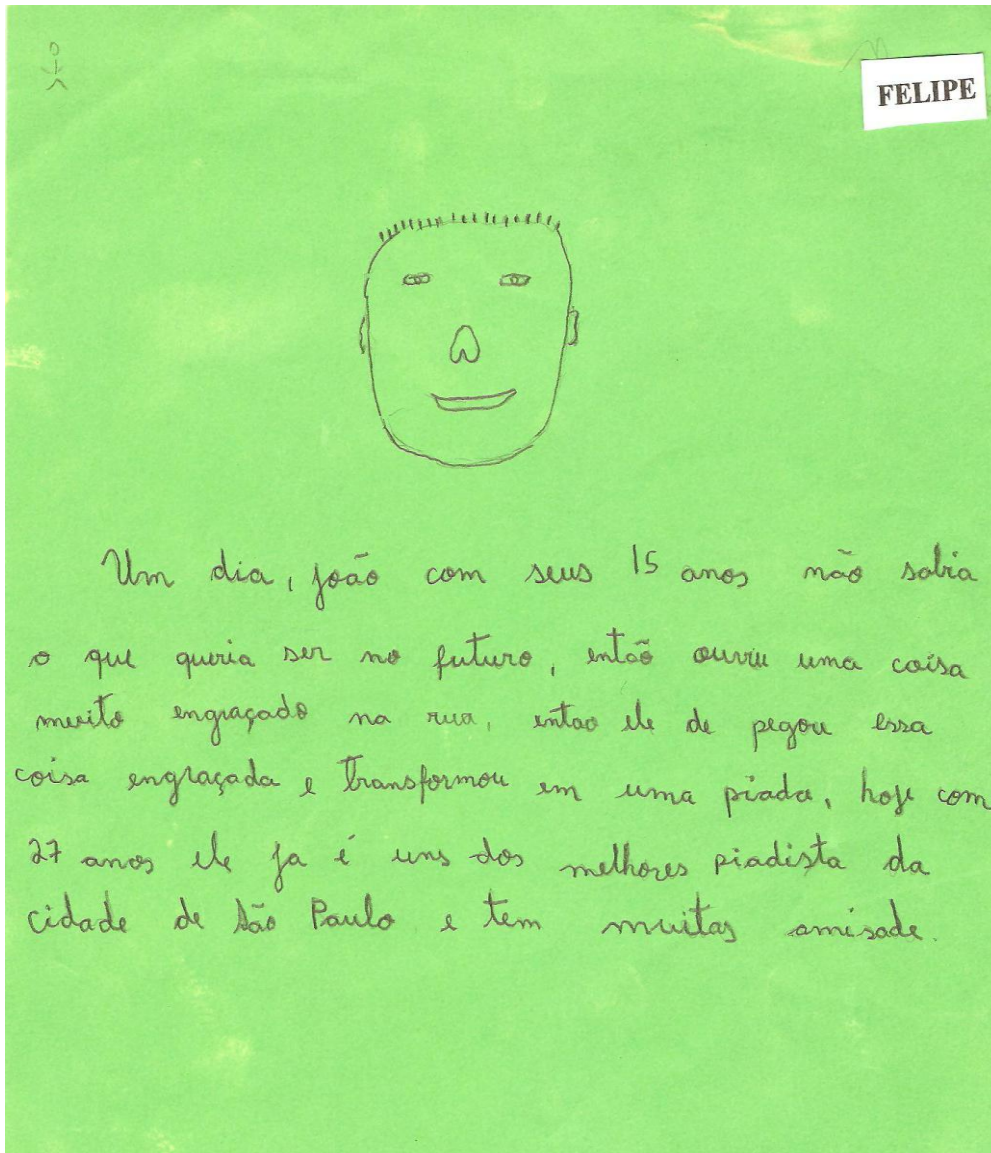 FELIPE
Um dia, joão com seus 15 anos não sabia
o que queria ser no futuro, então ouviu uma coisa
muito engraçado na rua, entao ele de pegou essa
coisa engraçada e transformou em uma piada, hoje com
27 anos ele ja é uns dos melhores piadista da
cidade de São Paulo e tem muitas amisade.